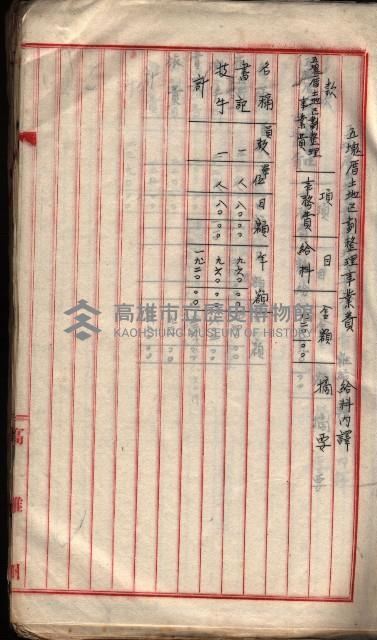 五塊厝土地區劃整理事業費 給料內譯
款 項 目 金額 摘要
五塊厝土地區劃整理事業費 事務費 給料 一九二〇〇〇
名稱 員數 單位 月額 年額
書記 一 人 八〇〇〇 九六〇〇〇
技手 一 人 八〇〇〇 九六〇〇〇
計 一九二〇〇〇
高雄州
高雄市立歷史博物館
KAOHSIUNG MUSEUM OF HISTORY